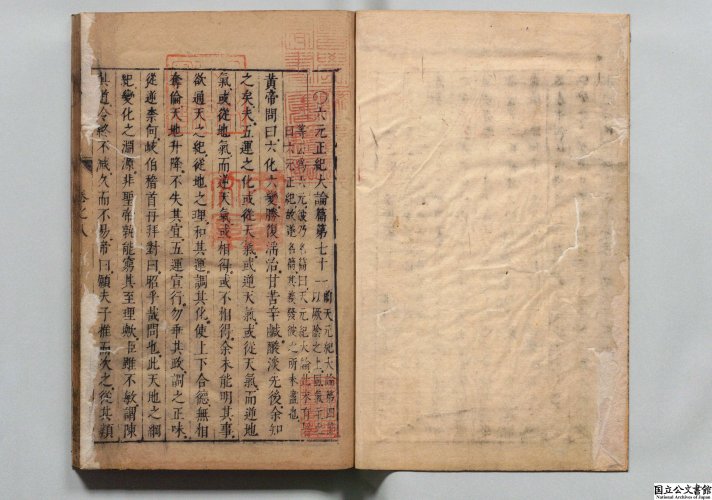 六元正紀大論篇第七十一
黄帝問曰六化六變勝復淫治甘苦辛鹹酸淡先後余知
之矣夫五運之化或從天氣或逆天氣或從天氣而逆地
氣或從地氣而逆天氣或相得或不相得余未能明其事
欲通天之紀從地之理和其運調其化使上下合德無相
奪倫天地升降不失其宜五運宣行勿乖其政調之正味
從逆奈何岐伯稽首再拜對曰昭乎哉問也此天地之綱
紀變化之淵源非聖帝孰能窮其至理歟臣雖不敏請陳
其道令終不滅久而不易帝曰願夫子推而次之從其類
卷之八
国立公文書館
National Archives of Japan